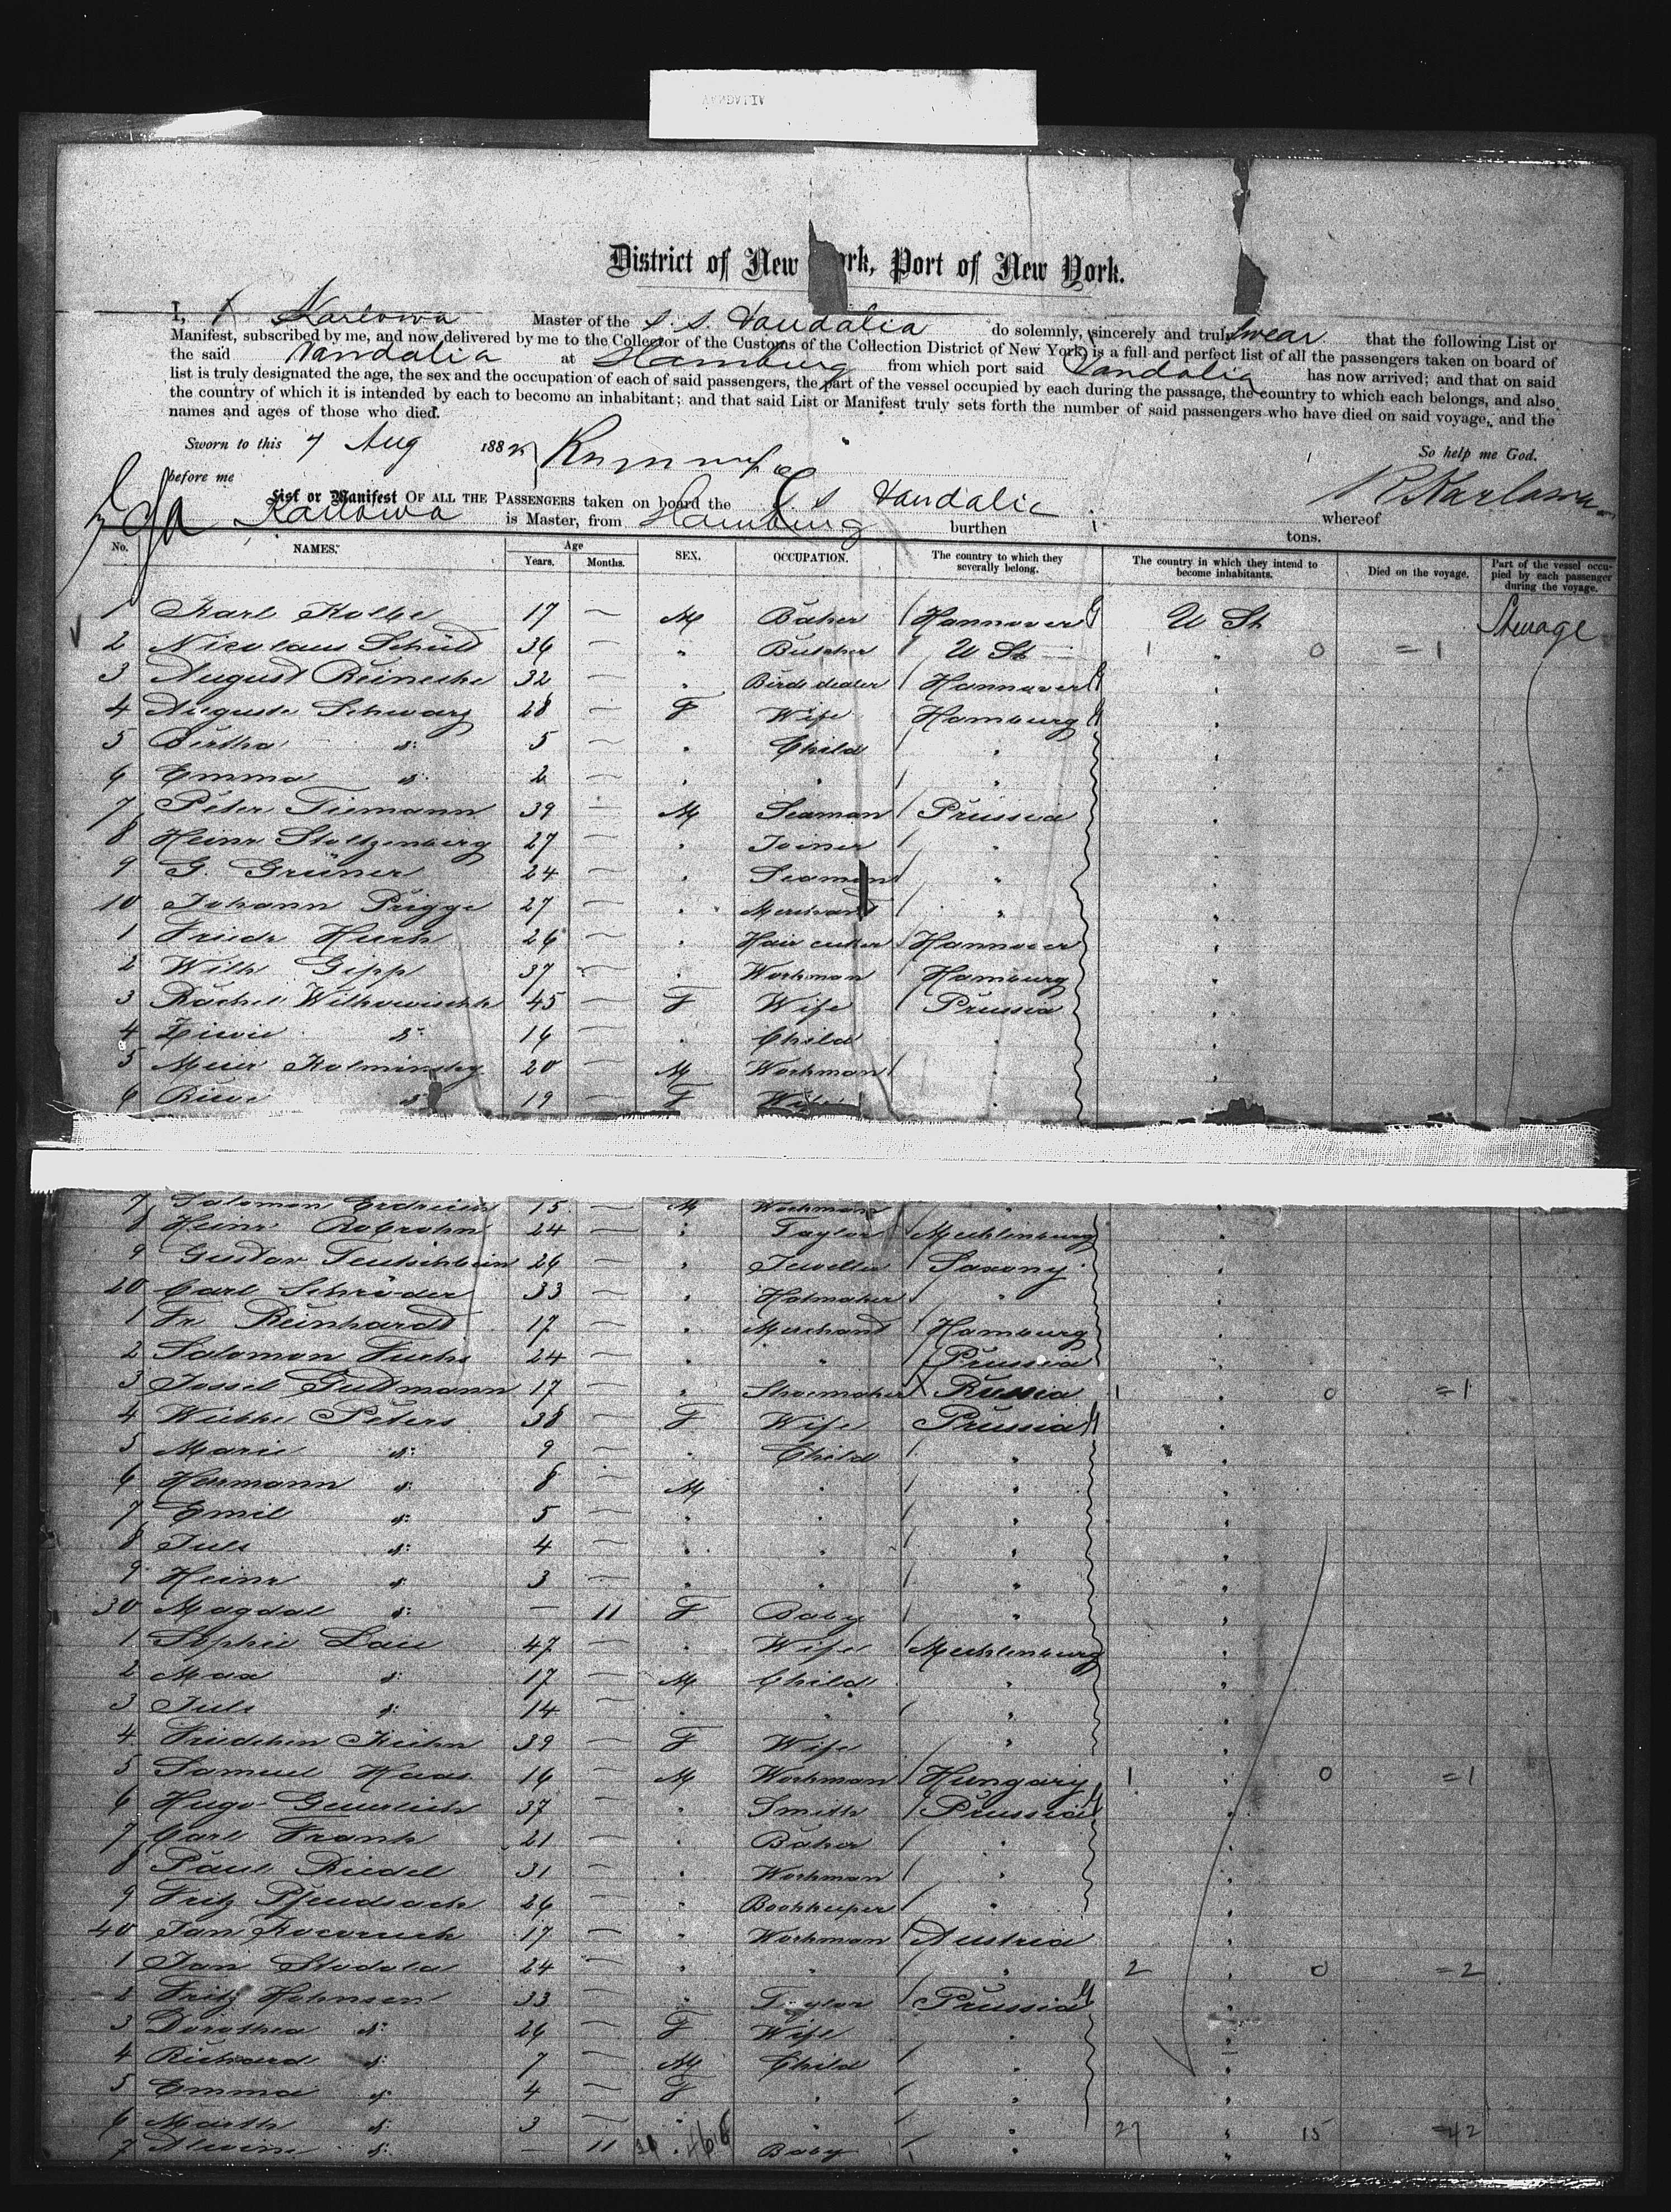 District of New York, Port of New York.
I, Karlowa Master of the S. S. Vandalia do solemnly, sincerely and truly Swear that the following List or
Manifest, subscribed by me, and now delivered by me to the Collector of the Customs of the Collection District of New York, is a full and perfect list of all the passengers taken on board of
the said Vandalia at Hamburg from which port said Vandalia has now arrived; and that on said
list is truly designated the age, the sex and the occupation of each of said passengers, the part of the vessel occupied by each during the passage, the country to which each belongs, and also
the country of which it is intended by each to become an inhabitant; and that said List or Manifest truly sets forth the number of said passengers who have died on said voyage, and the
names and ages of those who died.
Sworn to this 7 Aug 188 So help me God.
before me R Karlowa
List or Manifest OF ALL THE PASSENGERS taken on board the S S Vandalia whereof
Karlowa is Master, from Hamburg burthen tons.
No. NAMES. Age Years. Months. SEX. OCCUPATION. The country to which they severally belong. The country in which they intend to become inhabitants. Died on the voyage. Part of the vessel occupied by each passenger during the voyage.
1 Karl Kolbe 17 — M Baker Hannover U St Steerage
2 Nicolaus Schüld 36 — " Butcher U St 1 " 0 = 1
3 August Reineche 32 — " Birdsdealer Hannover "
4 Auguste Schwarz 28 — F Wife Hamburg "
5 Bertha d: 5 — " Child " "
6 Emma d: 2 — " " " "
7 Peter Tiemann 39 — M Seaman Prussia "
8 Heinr Stoltzenberg 27 — " Joiner " "
9 G. Grüner 24 — " Seaman " "
10 Johann Prigge 27 — " Merchant " "
1 Friedr Huch 26 — " Hair cutter Hannover "
2 Wilh Gipp 37 — " Workman Hamburg "
3 Rachel Witkowischk 45 — F Wife Prussia "
4 d: 14 — " Child " "
5 Meier Kolminsky 20 — M Workman " "
6 Riwe d: 19 — F Wife "
7 Salomon 15 — M Workman "
8 Heinr Rabrahn 24 — " Taylor Mecklenburg "
9 Gustav Teutschbein 26 — " Jeweller Saxony "
20 Carl Schröder 33 — " Hatmaker " "
1 Fr Reinhardt 17 — " Merchant Hamburg "
2 Salomon Fuchs 24 — " " Prussia "
3 Jossel Guttmann 17 — " Shoemaker Russia 1 " 0 = 1
4 Wiebke Peters 38 — F Wife Prussia "
5 Marie d: 9 — " Child " "
6 Hermann d: 8 — M " " "
7 Emil d: 5 — " " " "
8 Juls d: 4 — " " " "
9 Heinr d: 3 — " " " "
30 Magdal d: — 11 F Baby " "
1 Sophie Lau 47 — " Wife Mecklenburg "
2 Max d: 17 — M Child " "
3 Juls d: 14 — " " " "
4 Friedchen Kühn 39 — F Wife " "
5 Samuel Haas 16 — M Workman Hungary 1 " 0 = 1
6 Hugo 37 — " Smith Prussia "
7 Carl Frank 21 — " Baker " "
8 Paul Riedel 31 — " Workman " "
9 Fritz 26 — " Bookkeeper " "
40 Jan 17 — " Workman Austria "
1 Jan Stodola 24 — " " " 2 " 0 = 2
2 Fritz Hohnsen 33 — " Taylor Prussia "
3 Dorothea d: 26 — F Wife " "
4 Richard d: 7 — M Child " "
5 Emma d: 4 — F " " "
6 Marth d: 3 — " " " 27 " 15 = 42
7 Alwine d: — 11 " Baby " "